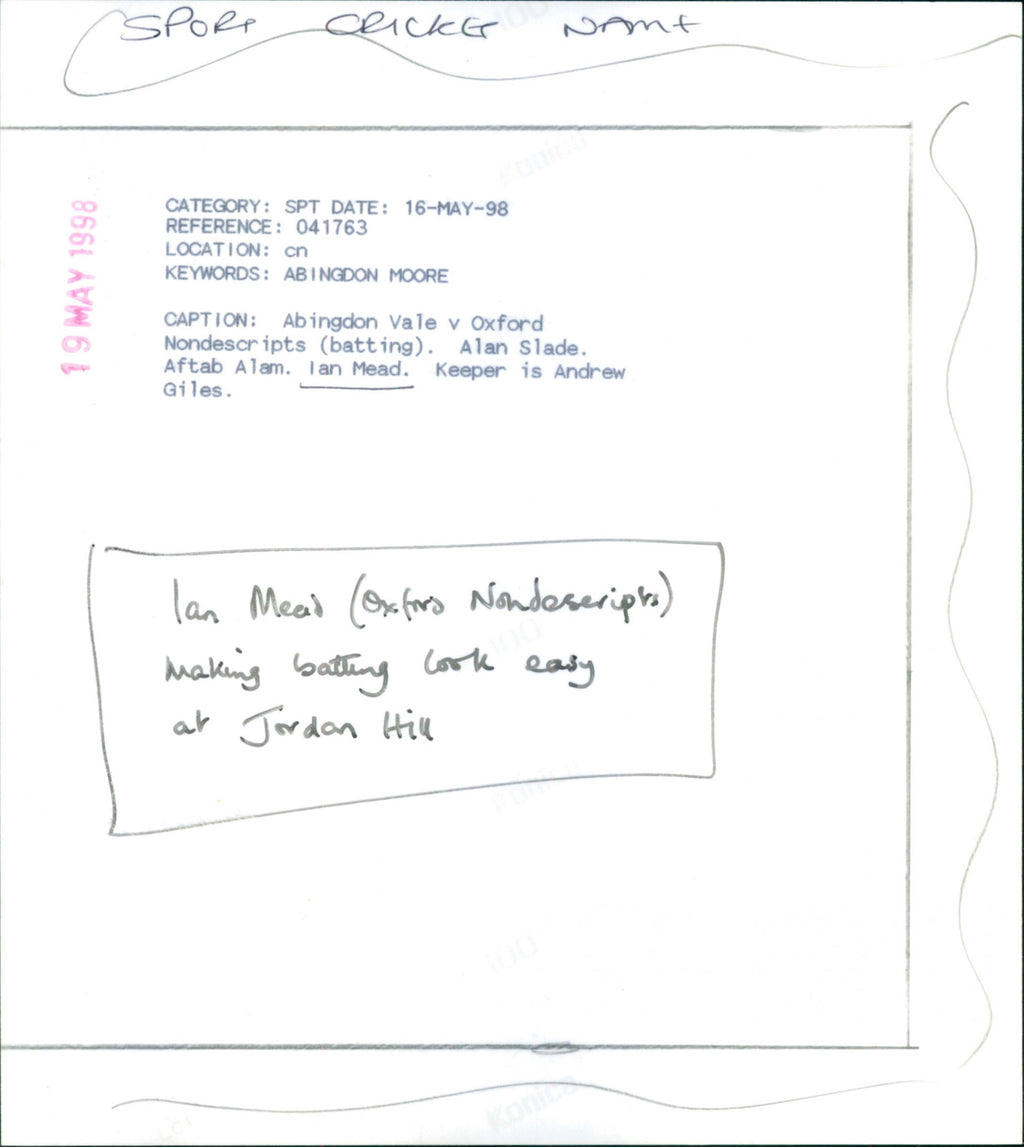 SPORT CRICKET NAME
Konica
19 MAY 1998
CATEGORY: SPT DATE: 16-MAY-98
REFERENCE: 041763
LOCATION: cn
KEYWORDS: ABINGDON MOORE
CAPTION: Abingdon Vale v Oxford
Nondescripts (batting). Alan Slade.
Aftab Alam. Ian Mead. Keeper is Andrew
Giles.
Ian Mead (Oxford Nondescripts)
making batting look easy
at Jordan Hill
100
Konica
100
Konica